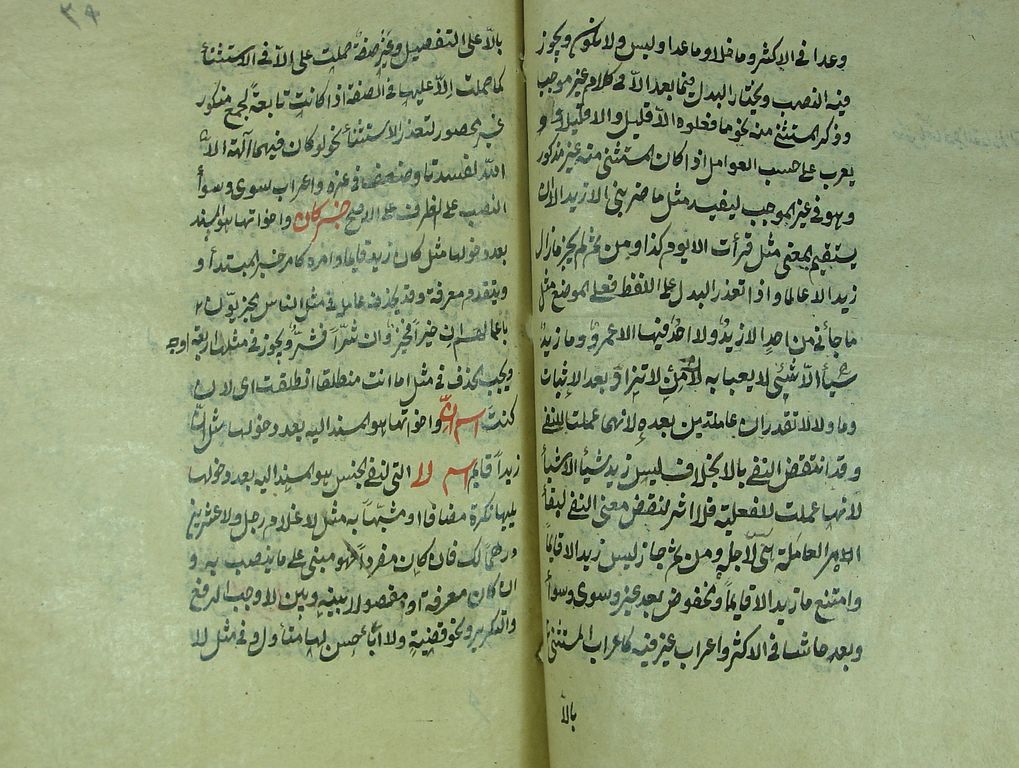 وعدا فى الاكثر وما خلا وما عدا وليس ولا يكون ويجوز
فيه النصب ويختار البدل فيما بعد الا فى كلام غير موجب
وذكر المستثنى منه نحو ما فعلوه الا قليل والا قليلا و
يعرب على حسب العوامل اذا كان المستثنى منه غير مذكور
وهو فى غير الموجب ليفيد مثل ما ضربنى الا زيد الا ان
يستقيم المعنى مثل قرأت الا يوم كذا ومن ثم لم يجز ما زال
زيد الا عالما واذا تعذر البدل على اللفظ فعلى الموضع مثل
ما جائنى من احد الا زيد ولا احد فيها الا عمرو وما زيد
شيأ الا شيئ لا يعبأ به لان من لا تزاد بعد الاثبات
وما ولا لا تقدران عاملتين بعده لانهما عملتا للنفى
وقد انتقض النفى بالا بخلاف ليس زيد شيأ الا شيأ
لانها عملت للفعلية فلا اثر لنقض معنى النفى لبقأ
الامر العاملة هى لاجله ومن ثم جاز ليس زيد الا قايما
وامتنع ما زيد الا قايما ومخفوض بعد غير وسوى وسوأ
وبعد حاشا فى الاكثر واعراب غير فيه كاعراب المستثنى
بالا
٣٩
بالا على التفصيل وغير صفة حملت على الا فى الاستثنأ
كما حملت الا عليها فى الصفة اذا كانت تابعة لجمع منكور
غير محصور لتعذر الاستثنأ نحو لو كان فيهما آلهة الا
الله لفسدتا وضعف فى غيره واعراب سوى وسوأ
النصب على الظرف على الاصح خبر كان واخواتها هو المسند
بعد دخولها مثل كان زيد قايما وامره كامر خبر المبتدأ و
ويتقدم معرفة وقد يحذف عامله فى مثل الناس مجزيون
باعمالهم ان خيرا فخير وان شرا فشر ويجوز فى مثلها اربعة اوجه
ويجب الحذف فى مثل اما انت منطلقا انطلقت اى لان
كنت اسم ان واخواتها هو المسند اليه بعد دخولها مثل ان
زيدا قايم اسم لا التى لنفى الجنس هو المسند اليه بعد دخولها
يليها نكرة مضافا او مشبها به مثل لا غلام رجل ولا عشرين
درهما لك فان كان مفردا فهو مبنى على ما ينصب به و
ان كان معرفة او مفصولا بينه وبين لا وجب الرفع
والتكرير ونحو قضية ولا ابا حسن لها متأول وفى مثل لا